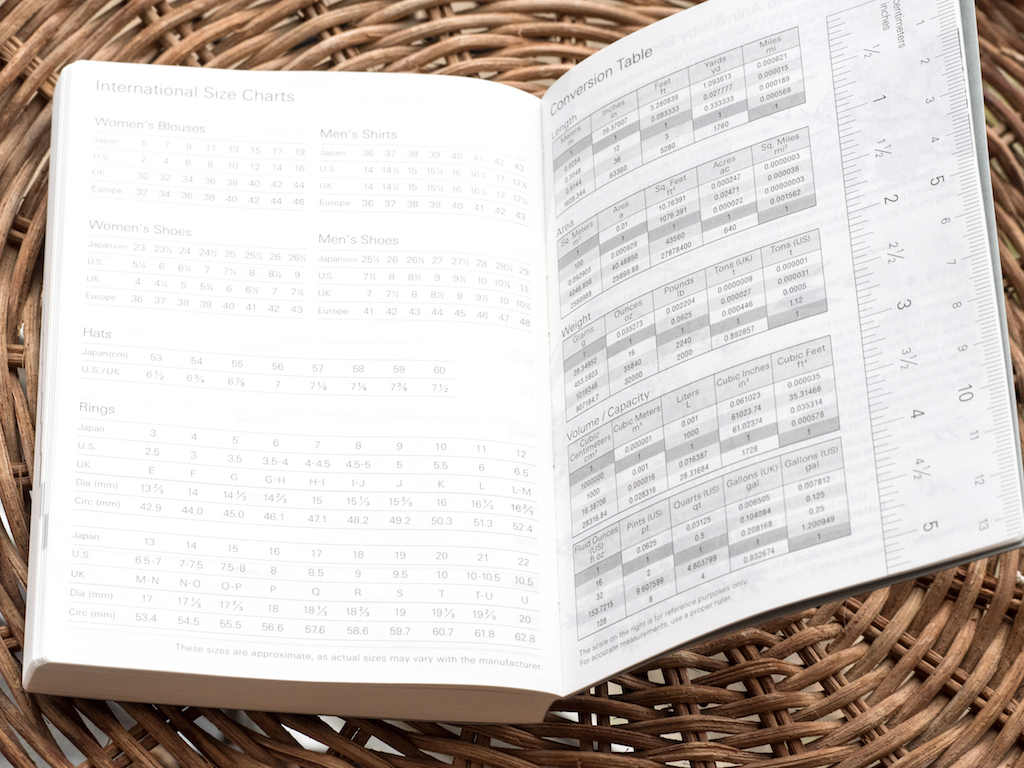 International Size Charts
Women's Blouses
Japan 5 7 9 11 13 15 17 19
U.S. 2 4 6 8 10 12 14 16
UK 30 32 34 36 38 40 42 44
Europe 32 34 36 38 40 42 44 46
Men's Shirts
Japan 36 37 38 39 40 41 42 43
U.S. 14 14½ 15 15½ 16 16½ 17 17½
UK 14 14½ 15 15½ 16 16½ 17 17½
Europe 36 37 38 39 40 41 42 43
Women's Shoes
Japan(cm) 23 23½ 24 24½ 25 25½ 26 26½
U.S. 5½ 6 6½ 7 7½ 8 8½ 9
UK 4 4½ 5 5½ 6 6½ 7 7½
Europe 36 37 38 39 40 41 42 43
Men's Shoes
Japan(cm) 25½ 26 26½ 27 27½ 28 28½ 29
U.S. 7½ 8 8½ 9 9½ 10 10½ 11
UK 7 7½ 8 8½ 9 9½ 10 10½
Europe 41 42 43 44 45 46 47 48
Hats
Japan(cm) 53 54 55 56 57 58 59 60
U.S./UK 6½ 6¾ 6⅞ 7 7⅛ 7¼ 7⅜ 7½
Rings
Japan 3 4 5 6 7 8 9 10 11 12
U.S. 2.5 3 3.5 3.5-4 4-4.5 4.5-5 5 5.5 6 6.5
UK E F G G-H H-I I-J J K L L-M
Dia (mm) 13⅔ 14 14⅓ 14⅔ 15 15⅓ 15⅔ 16 16⅓ 16⅔
Circ (mm) 42.9 44.0 45.0 46.1 47.1 48.2 49.2 50.3 51.3 52.4
Japan 13 14 15 16 17 18 19 20 21 22
U.S. 6.5-7 7-7.5 7.5-8 8 8.5 9 9.5 10 10-10.5 10.5
UK M-N N-O O-P P Q R S T T-U U
Dia (mm) 17 17⅓ 17⅔ 18 18⅓ 18⅔ 19 19⅓ 19⅔ 20
Circ (mm) 53.4 54.5 55.5 56.6 57.6 58.6 59.7 60.7 61.8 62.8
These sizes are approximate, as actual sizes may vary with the manufacturer.
Conversion Table
Length
Meters m Inches in Feet ft Yards yd Miles mi
1 39.37007 3.280839 1.093613 0.000621
1 0.083333 0.027777 0.000015
12 1 0.333333 0.000189
36 3 1 0.000568
63360 5280 1760 1
Area
Sq. Meters m² Area a Sq. Feet ft² Acres ac Sq. Miles mi²
1 0.01 10.76391 0.000247 0.0000003
100 1 1076.391 0.02471 0.000038
0.000929 1 0.000022 0.00000003
40.46856 43560 1 0.001562
25899.88 27878400 640 1
Weight
Grams g Ounces oz Pounds lb Tons (UK) t Tons (US) t
1 0.035273 0.002204 0.0000009 0.000001
28.34952 1 0.0625 0.000027 0.000031
453.5923 16 1 0.000446 0.0005
1016046 35840 2240 1 1.12
907184.7 32000 2000 0.892857 1
Volume / Capacity
Cubic Centimeters cm³ Cubic Meters m³ Liters L Cubic Inches in³ Cubic Feet ft³
1 0.000001 0.001 0.061023 0.000035
1000000 1 1000 61023.74 35.31466
1000 0.001 1 61.02374 0.035314
16.38706 0.000016 0.016387 1 0.000578
28316.84 0.028316 28.31684 1728 1
Fluid Ounces (US) fl oz Pints (US) pt Quarts (US) qt Gallons (UK) gal Gallons (US) gal
1 0.0625 0.03125 0.006505 0.007812
16 1 0.5 0.104084 0.125
32 2 1 0.208168 0.25
153.7215 9.607599 4.803799 1 1.200949
128 8 4 0.832674 1
The scale on the right is for reference purposes only.
For accurate measurements, use a proper ruler.
centimeters
inches
½ 1 1½ 2 2½ 3 3½ 4 4½ 5
1 2 3 4 5 6 7 8 9 10 11 12 13